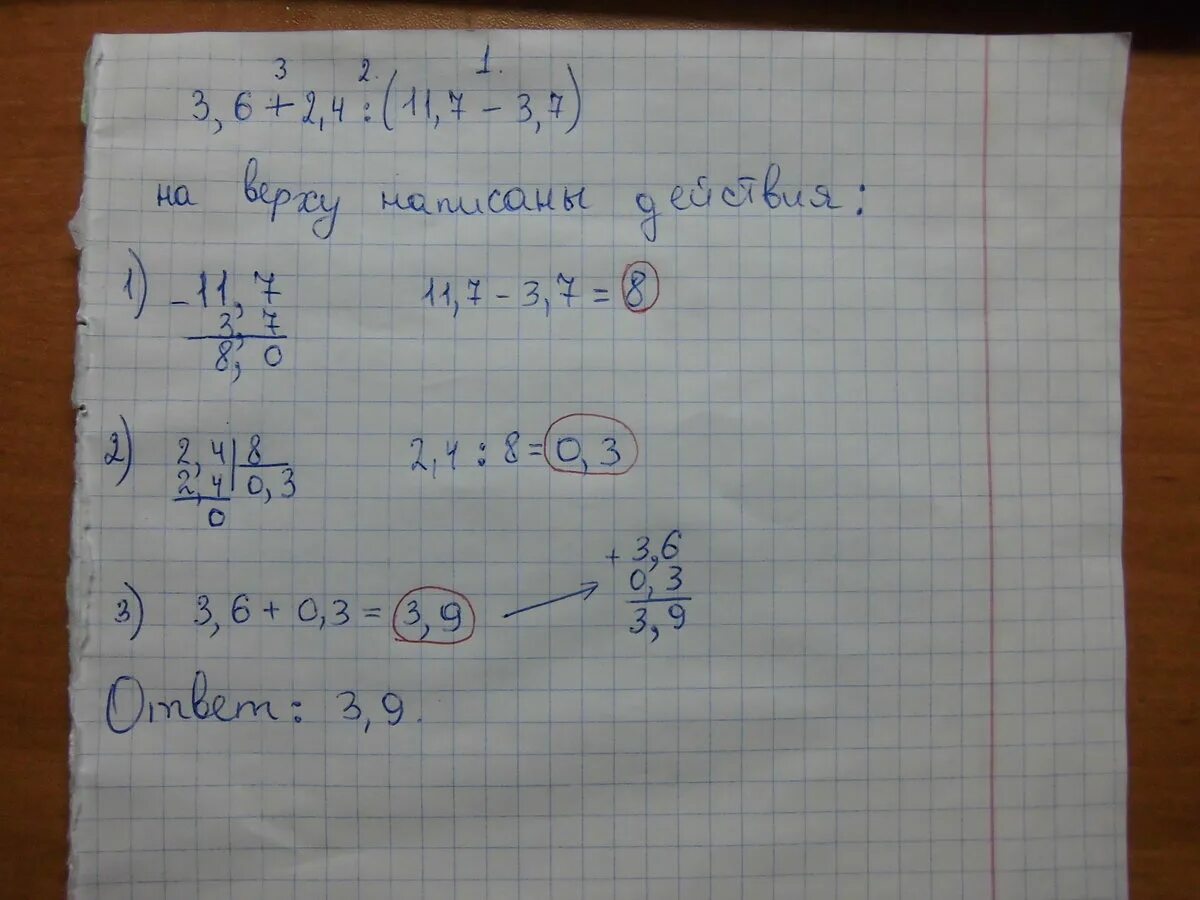 3 2. 1.
3,6 + 2,4 : (11,7 - 3,7)
на верху написаны действия:
1) - 11,7 11,7 - 3,7 = 8
3,7
8,0
2) 2,4 8 2,4 : 8 = 0,3
2,4 0,3
0
+ 3,6
0,3
3,9
3) 3,6 + 0,3 = 3,9
Ответ: 3,9.